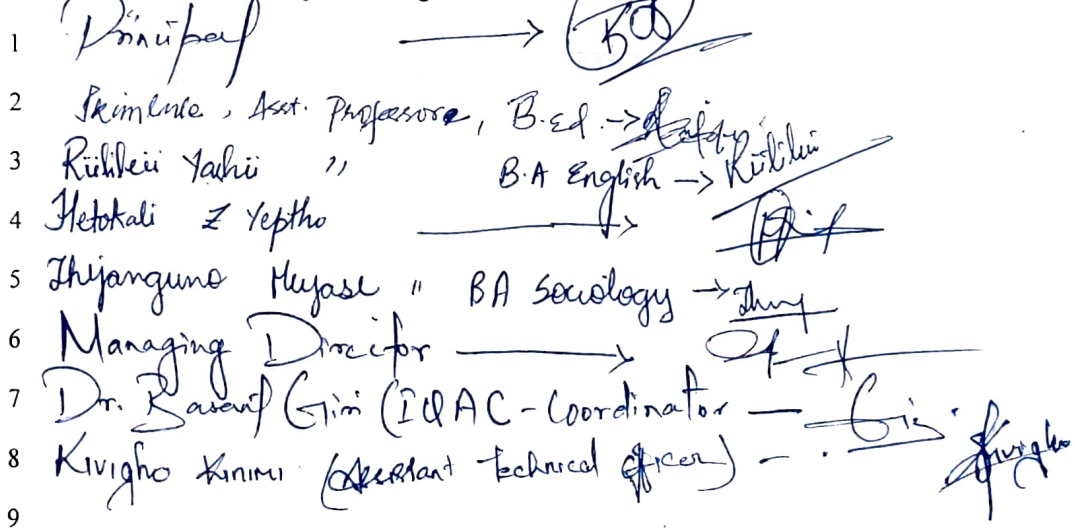 1 Principal →
2 Asst. Professore, B.ed. →
3 Rülileii Yachü " B.A English → Rülileii
4 Hetokali Z Yeptho →
5 Thijanguno " BA Sociology →
6 Managing Director →
7 Dr. Giri (IQAC - Coordinator — Giri
8 Kivigho Kinimi (Assistant technical officer) - Kivigho
9